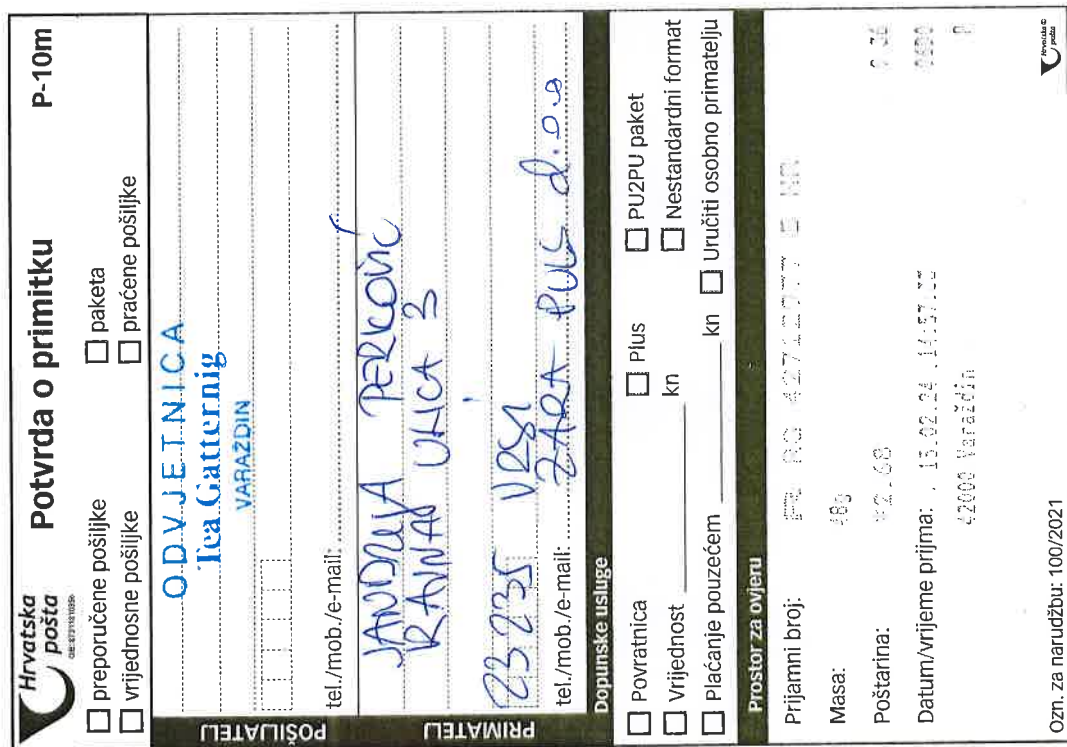 Hrvatska pošta
Potvrda o primitku
P-10m
preporučene pošiljke
paketa
vrijednosne pošiljke
praćene pošiljke
POŠILJATELJ
ODVJETNICA
Tea Gatternig
VARAŽDIN
tel./mob./e-mail:
PRIMATELJ
PERKOVIĆ
ULICA 3
23235 VRSI
ZARA PULS d.o.o
tel./mob./e-mail:
Dopunske usluge
Povratnica
Plus
PU2PU paket
Vrijednost kn
Nestandardni format
Plaćanje pouzećem kn
Uručiti osobno primatelju
Prostor za ovjeru
Prijamni broj: HR
Masa:
Poštarina:
Datum/vrijeme prijma:
42000 Varaždin
Ozn. za narudžbu: 100/2021
Hrvatska pošta